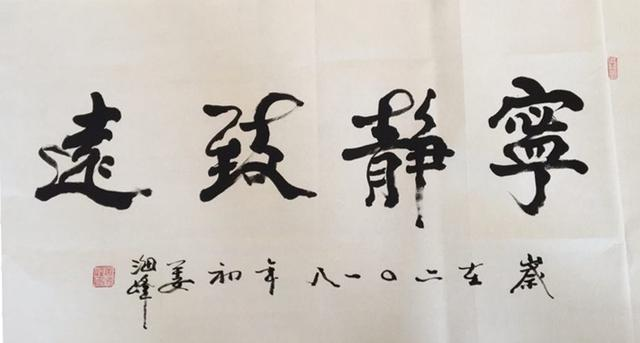 寧靜致遠
歲在二〇一八年初夏
海峰